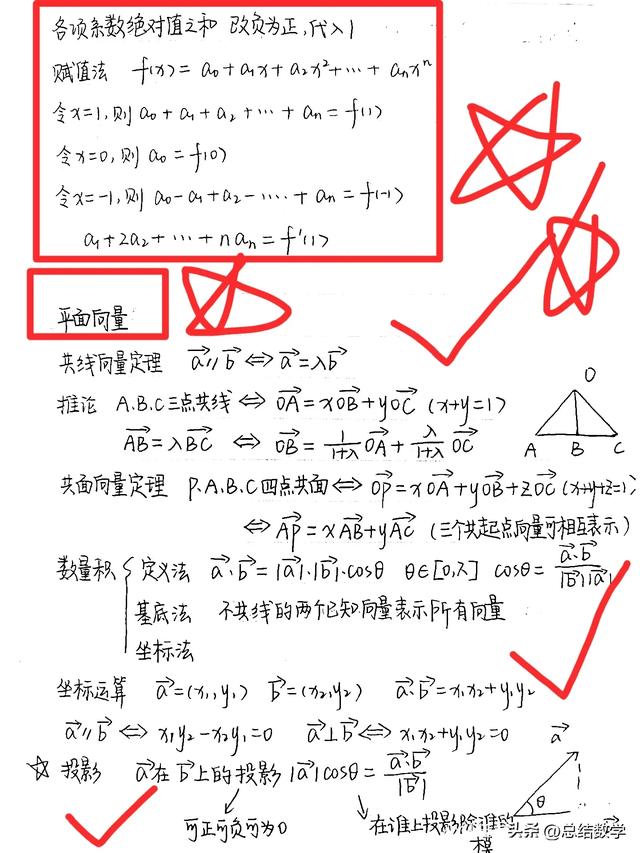 各项系数绝对值之和 改负为正,代入1
赋值法 f(x) = a₀ + a₁x + a₂x² + ⋯ + aₙxⁿ
令x=1,则 a₀ + a₁ + a₂ + ⋯ + aₙ = f(1)
令x=0,则 a₀ = f(0)
令x=-1,则 a₀ - a₁ + a₂ - ⋯ + aₙ = f(-1)
a₁ + 2a₂ + ⋯ + naₙ = f'(1)
平面向量
共线向量定理 a⃗ ∥ b⃗ ⇔ a⃗ = λb⃗
推论 A.B.C三点共线 ⇔ OA⃗ = xOB⃗ + yOC⃗ (x+y=1)
AB⃗ = λBC⃗ ⇔ OB⃗ = 1/(1+λ) OA⃗ + λ/(1+λ) OC⃗
O
A B C
共面向量定理 P.A.B.C四点共面 ⇔ OP⃗ = xOA⃗ + yOB⃗ + zOC⃗ (x+y+z=1)
⇔ AP⃗ = xAB⃗ + yAC⃗ (三个共起点向量可相互表示)
数量积 { 定义法 a⃗·b⃗ = |a⃗|·|b⃗|·cosθ θ∈[0,π] cosθ = a⃗·b⃗/|b⃗||a⃗|
基底法 不共线的两个已知向量表示所有向量
坐标法
坐标运算 a⃗=(x₁,y₁) b⃗=(x₂,y₂) a⃗·b⃗ = x₁x₂+y₁y₂
a⃗ ∥ b⃗ ⇔ x₁y₂-x₂y₁=0 a⃗⊥b⃗ ⇔ x₁x₂+y₁y₂=0 a⃗
☆ 投影 a⃗在b⃗上的投影 |a⃗|cosθ = a⃗·b⃗/|b⃗|
θ
可正可负可为0 在谁上投影除谁的模
头条 @总结数学